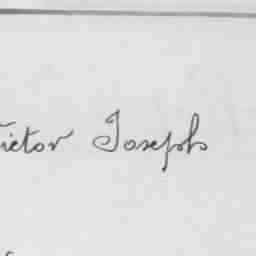 Victor Joseph